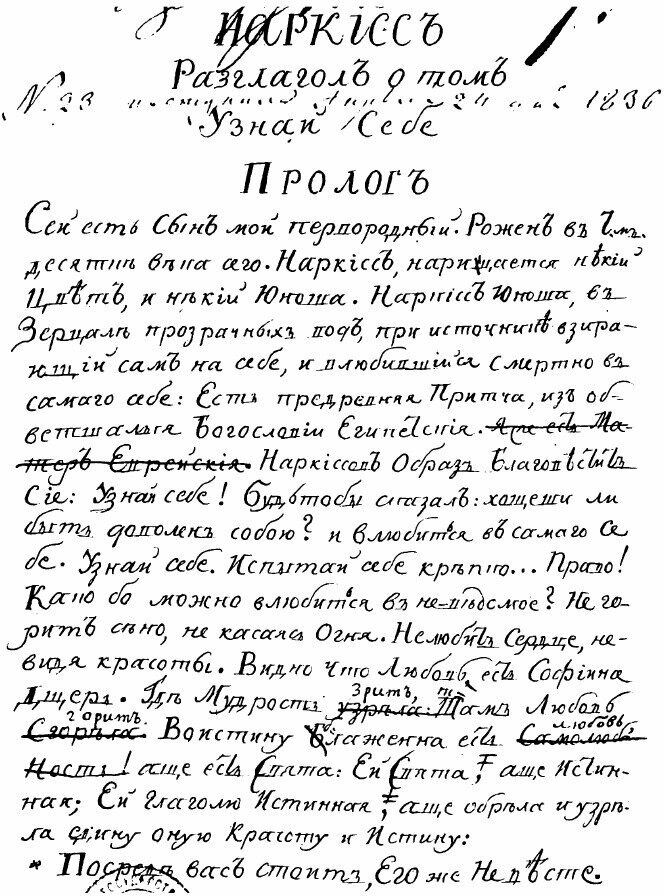 НАРКІССЪ
Разглаголъ о томъ
N. 23 1836
Узнай Себе
ПРОЛОГЪ
Сей есть Сынъ мой первородный. Роженъ въ 7.м.ъ.
десяткѣ вѣка сего. Наркіссъ, нарицается нѣкій
Цвѣтъ, и нѣкій Юноша. Наркіссъ Юноша, въ
Зерцалѣ прозрачныхъ водъ, при источникѣ взира-
ющій самъ на себе, и влюбившійся смертно въ
самаго себе: Есть предревняя Притча, изъ об-
ветшалыя Богословіи Египетскія. Яже есть Ма-
терь Еврейскія. Наркіссовъ Образъ Благовѣститъ
Сіе: Узнай себе! Будьтобы сказалъ: хощеши ли
быть доволен собою? и влюбиться въ самаго Се-
бе. Узнай себе. Испытай себе крѣпко... Право!
Како бо можно влюбиться въ не-вѣдомое? Не го-
ритъ сѣно, не касаясь Огня. Нелюбитъ Сердце, не-
видя красоты. Видно что Любовь, есть Софіина
Дщерь. Гдѣ Мудрость узрѣла: Тамъ Любовь
зритъ, т
Сгорѣла. Воистину Блаженна есть Самолюб-
горитъ. любовь,
ность! аще есть Свята: Ей Свята, аще Истин-
ная; Ей глаголю Истинная, аще обрѣла и узрѣ-
ла едину оную Красоту и Истину:
* Посредѣ васъ стоитъ, Его же Не вѣсте.